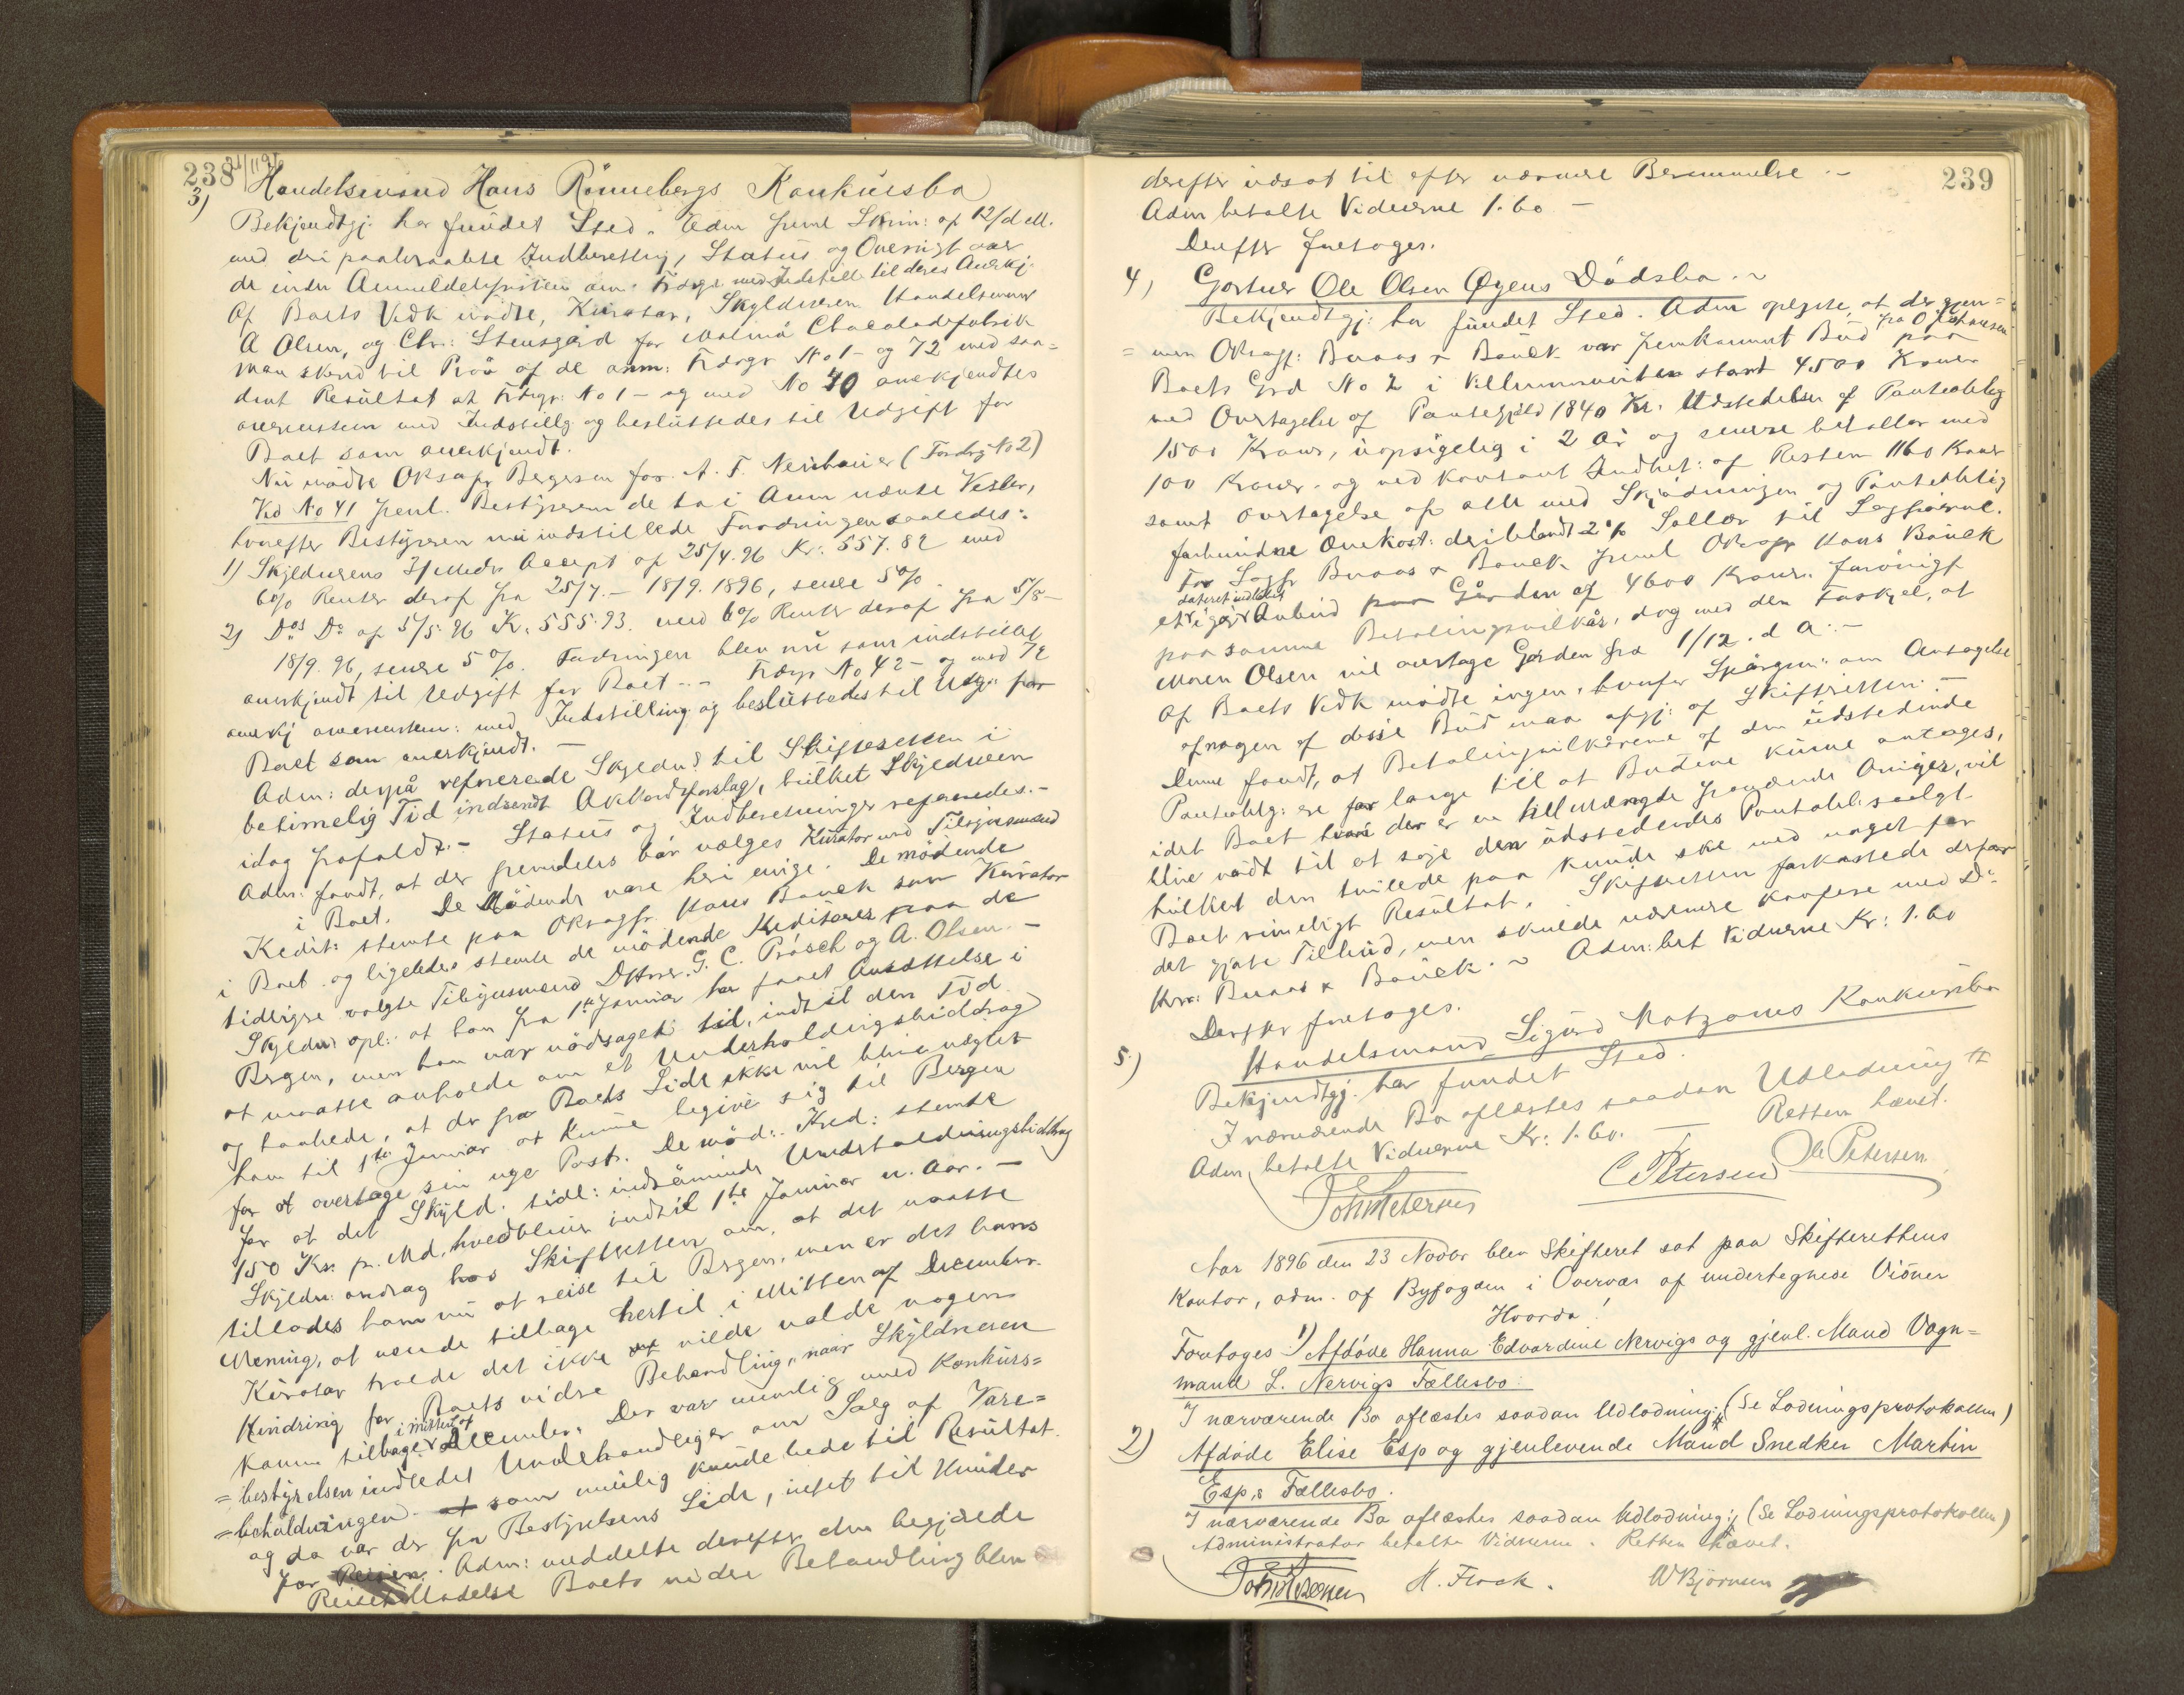 238 21/11 96
3) Handelsmand Hans Rønnebergs Konkursbo
Bekjendtgj. har fundet Sted. Adm freml Skrin: af 12/d M.
med dri paaberaabte Indberetting, Status og Oversigt over
de inden Anmeldelsfristen anm. Fordgr med Indstill til deres Anerkj.
Af Boets Vedk mødte, Kurator, Skyldneren Handelsmand
A Olsen, og Chr: Stensgård for Malmø Chocoladefabrik
Man skred til Prøv af de anm: Fordgr No 1 - og 72 med saa=
dant Resultat at Fordgr: No 1 - og med No 40 anerkjendtes
overensstem med Indstillg og besluttedes til Udgift for
Boet som anerkjendt.
Nu mødte OKsafr Bergersen for A. F. Neubauer (Fordrg No 2)
Kd No 41 freml. Bestyreren de ta i Anm nævnte Vexler,
hvorefter Bestyreren nu indstillede Fordringen saaledes:
1) Skyldnerens Accept af 25/4. 96 Kr: 557. 82 med
6% Renter deraf fra 25/7. - 18/9. 1896, senere 5%.
2) Dos Do af 5/5. 96 Kr. 555. 93. med 6% Renter deraf fra 5/8 -
18/9. 96, senere 5%. Fordringen blev nu som indstillet
anerkjendt til Udgift for Boet. - Fordgr No 42 - og med 72
anerkj overensstem: med Indstilling og besluttedes til Udg: for
Boet som anerkjendt. -
Adm: derpå refererede Skyldn: til Skifteretten i
betimelig Tid indsendt Akkordforslag, hvilket Skyldneren
idag frafaldt. - Status og Indberetninger refereredes. -
Adm: fandt, at der fremdeles bør vælges Kurator med Tilsynsmænd
i Boet. De Mødende vare heri enige. De mødende
Kedit: stemte paa OKsagfr Hans Bauck som Kurator
i Boet og ligeledes stemte de mødende Kreditorer paa de
tidligere valgte Tilsynsmænd DHrr. G. C. Prösch og A. Olsen. -
Skyldn: opl: at han fra 1te Januar har faaet Ansættelse i
Bergen, men han var nødsaget til, indtil den Tid
at maatte anholde om et Underholdningsbiddrag
og haabede, at der fra Boets Side ikke vil blive nægtet
ham til 1te Januar at kunne begive sig til Bergen
for at overtage sin nye Post. De mød: Kred: stemte
for at det Skyld. tidl: indrømmede Underholdningsbidrag
150 Kr. pr. Md, vedbliver indtil 1te Januar n. Aar. -
Skyldn: androg hos Skifteretten om, at det maatte
tillades ham nu at reise til Bergen, men er det hans
Mening, at vende tilbage hertil i Midten af December.
Kurator troede det ikke at vilde volde nogen
Hindring for Boets videre Behandling, naar Skyldneren
kommer tilbage i midten af December. Der var nemlig med Konkurs=
=bestyrelsen indledet Underhandlinger om Salg af Vare=
=beholdningen at som mulig kunde lede til Resultat.
og da var der fra Bestyrelsens Side, intet til Hinder
for Reisen. Adm: meddelte derefter den begjærede
Reisetilladelse Boets videre Behandling blev
239
derefter udsat til efter nærmere Berammelse. -
Adm betalte Vidnerne 1. 60 -
Derefter foretoges.
4) Gartner Ole Olsen Øyens Dødsbo. -
Bekjendtgj: har fundet Sted. Adm oplyste, at der gjen=
= nem OKsagf: Buaas & Bauck var fremkommet Bud fra O Johansen paa
Boets Grd No 2 i stort 4500 Kroner
med Overtagelse af Pantegjæld 1840 Kr. Udstedelse af Panteoblig
1500 Kroner, uopsigelig i 2 år og senere betaller med
100 Kroner og ved kontant Indbet: af Resten 1160 Kroner
samt overtagelse af alle med Skjødningen og Panteoblig
forbundne Omkost: deriblandt 2% Sallær til Sagførerne.
For Sagfr Buaas & Bauck freml OKsagfr Hans Bauck
et dateret udløbet igår Anbud paa Gården af 4600 Kroner forøvrigt
paa samme Betalingsvilkår, dog med den Forskjel, at
Maren Olsen vil overtage Gården fra 1/12. d A. -
Af Boets Vedk mødte ingen, hvorfor Spørgsm: om Antagelse
af nogen af disse Bud maa afgj: af Skifteretten. -
Denne fandt, at Betalingsvilkårene af den udstedende
Panteoblg: ere for lange til at Budene kunne antages,
idet Boet hvori der er en hel Mængde fraværende Arvinger, vil
blive nødt til at søge den udstedendes Panteobl: solgt
hvilket den tvilede paa kunde ske med noget for
Boet rimeligt Resultat. Skifteretten forkastede derfor
det gjorte Tilbud, men skulde nærmere konferere med D:
Hrr: Buaas & Bauck. - Adm: bet Vidnerne Kr: 1. 60
Derefter foretoges.
5) Handelsmand Sigurd Motzaus Konkursbo
Bekjendtgj. har fundet Sted.
I nærværende Bo oplæstes saadan Udlodning #
Adm betalte Vidnerne Kr: 1. 60. - Retten hævet.
C Petersen Ole Petersen
Aar 1896 den 23 Novbr blev Skifteret sat paa Skifterettens
Kontor, adm. af Byfogden i Overvær af undertegnede Vidner
Hvorda!
Foretoges 1) Afdøde Hanna Edvardine Nervigs og gjenl. Mand Vogn=
mand L. Nervigs Fællesbo.
I nærværende Bo oplæstes saadan Udlodning: # (Se Lodningsprotokollen)
2) Afdøde Elise Esp og gjenlevende Mand Snedker Martin
Esp's Fællesbo.
I nærværende Bo oplæstes saadan Udlodning: (Se Lodningsprotokollen)
Administrator betalte Vidnerne. Retten hævet.
H. Flock. W Bjørnsen